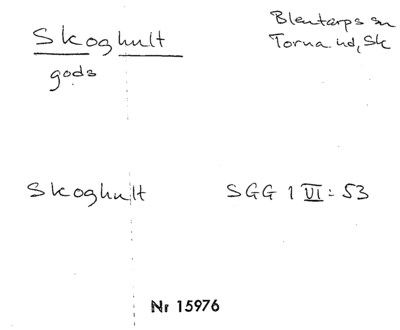 Skoghult
gods
Blentarps sn
Torna hd, Sk
Skoghult
SGG 1 VI: 53
Nr 15976